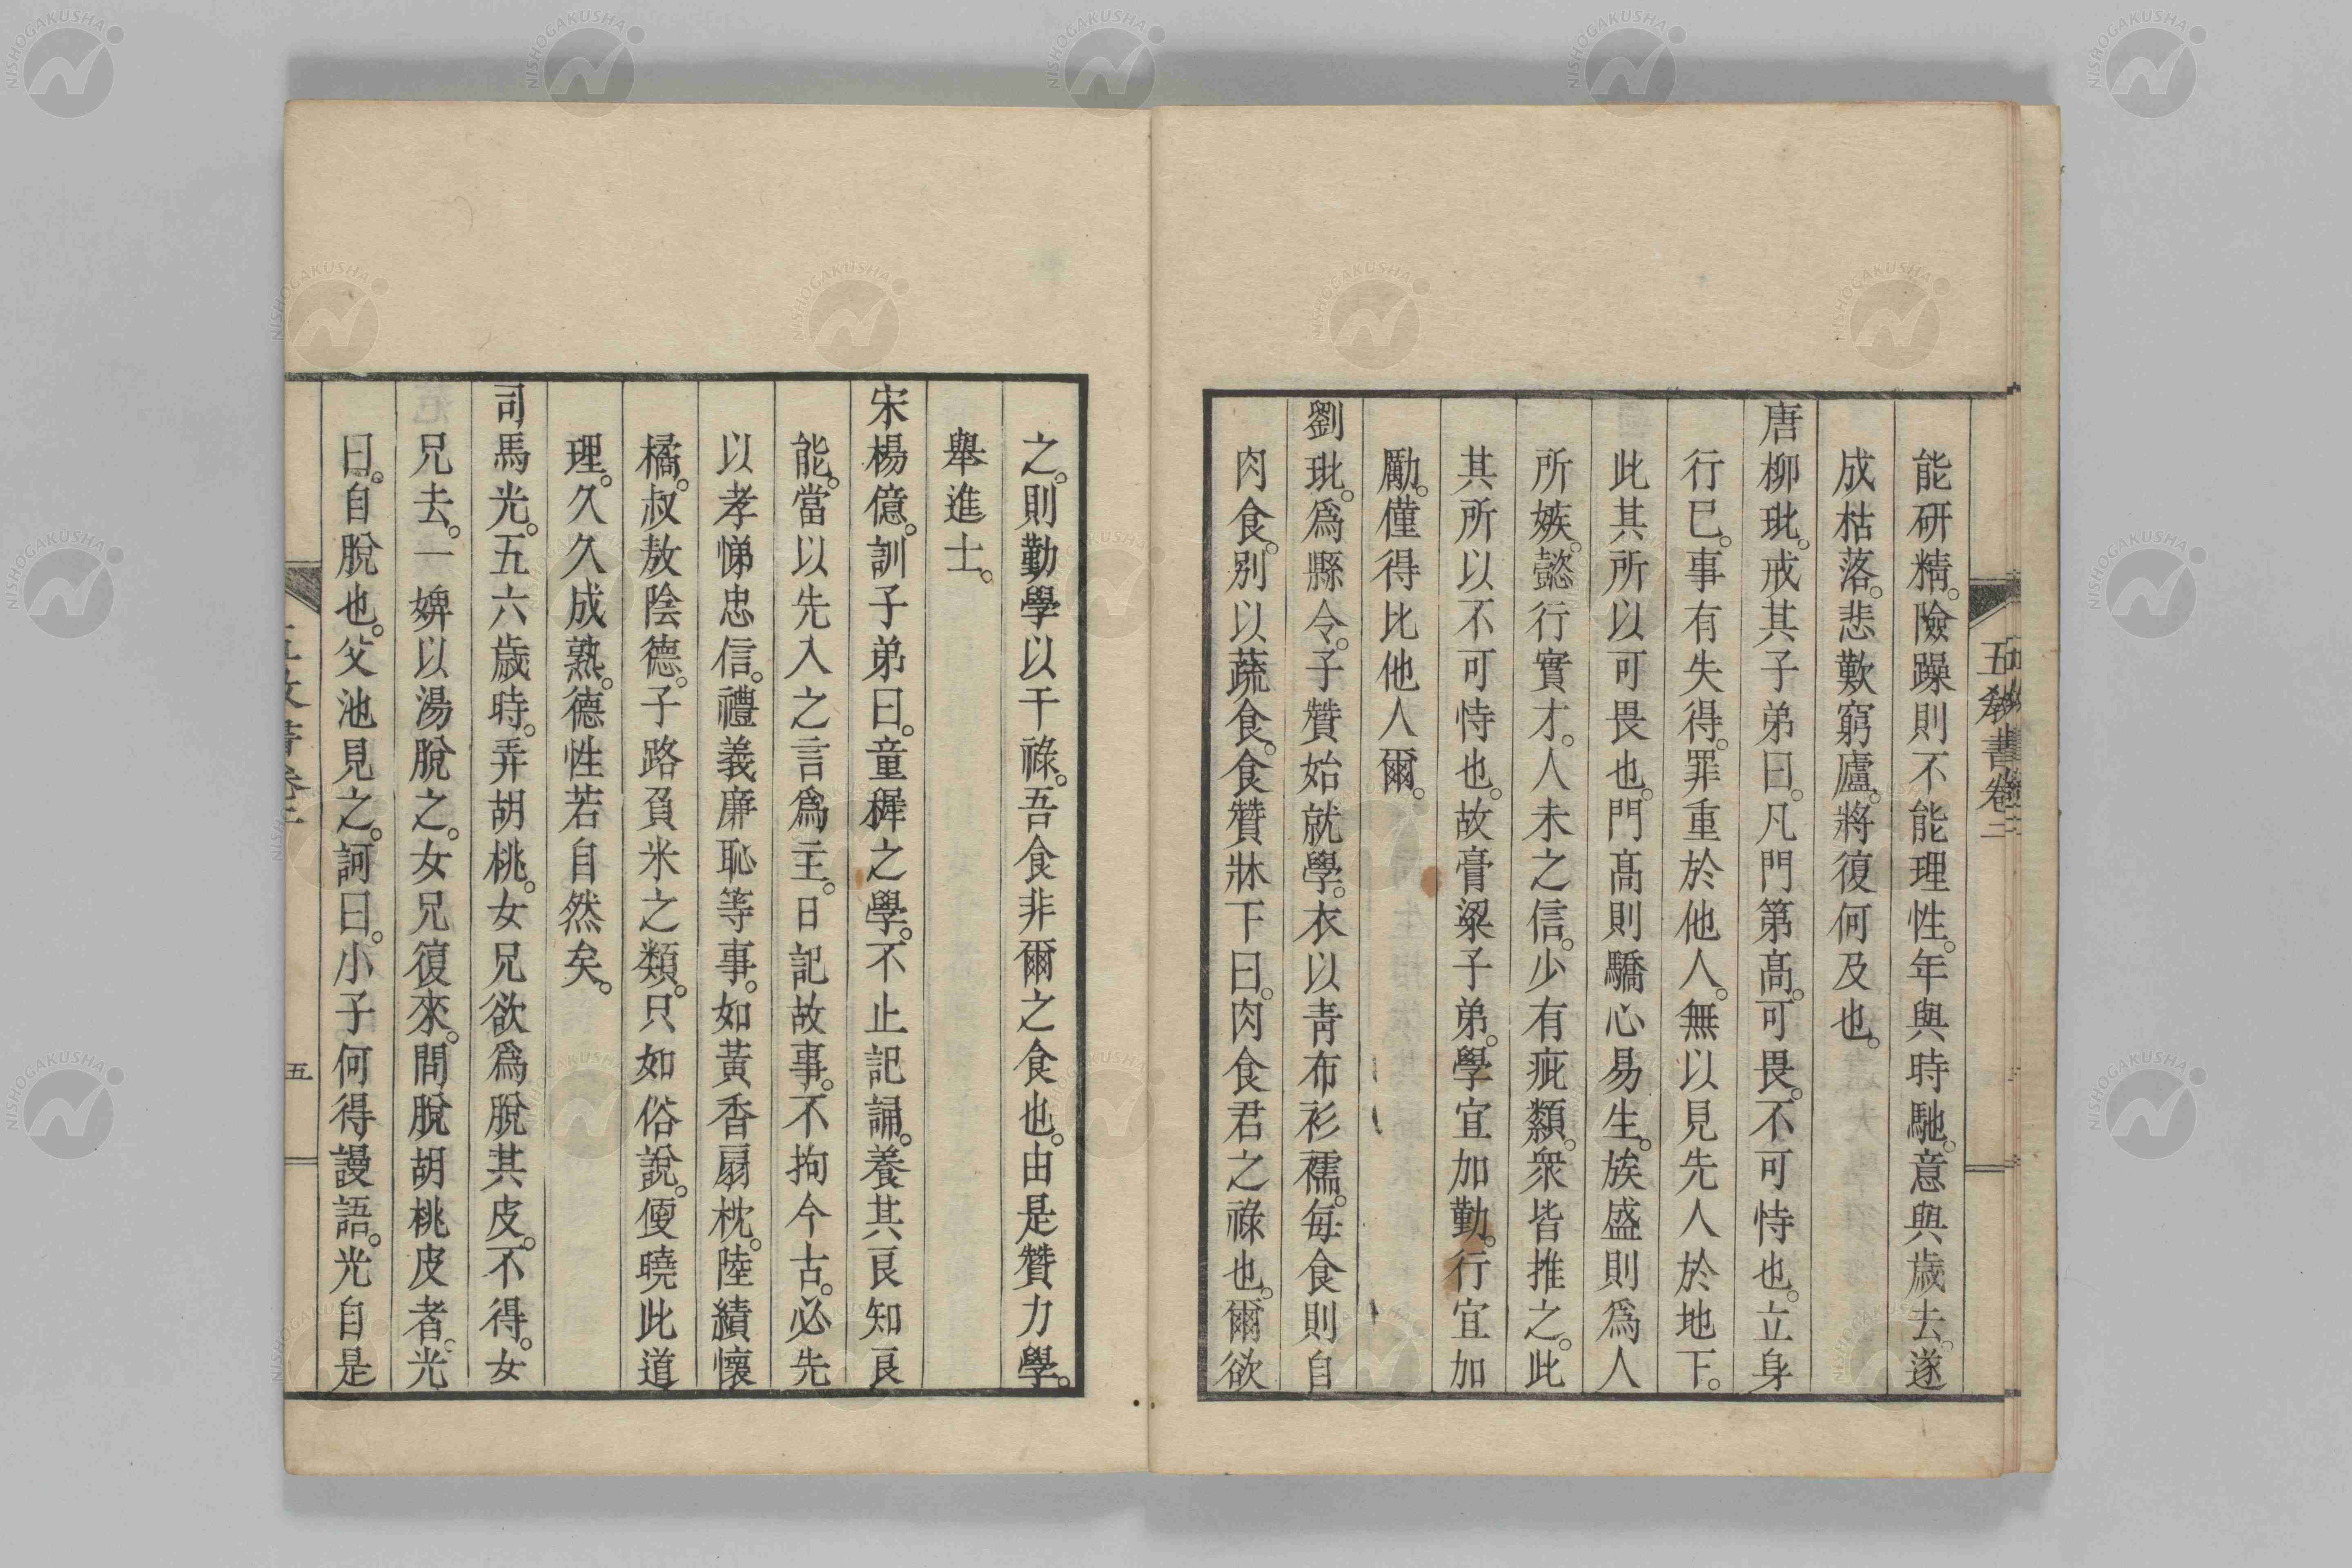 五教書卷二
能研精。險躁則不能理性。年與時馳。意與歲去。遂
成枯落。悲歎窮廬。將復何及也。
唐柳玭。戒其子弟曰。凡門第高。可畏。不可恃也。立身
行已。事有失得。罪重於他人。無以見先人於地下。
此其所以可畏也。門高則驕心易生。族盛則爲人
所嫉。懿行實才。人未之信。少有疵纇。衆皆推之。此
其所以不可恃也。故膏粱子弟。學宜加勤。行宜加
勵。僅得比他人爾。
劉玭。爲縣令。子贊始就學。衣以靑布衫襦。每食則自
肉食。別以蔬食。食贊牀下曰。肉食君之祿也。爾欲
之。則勤學以干祿。吾食非爾之食也。由是贊力學。
舉進士。
宋楊億。訓子弟曰。童穉之學。不止記誦。養其良知良
能。當以先入之言爲主。日記故事。不拘今古。必先
以孝悌忠信。禮義廉恥等事。如黃香扇枕。陸績懷
橘。叔敖陰德。子路負米之類。只如俗說。便曉此道
理。久久成熟。德性若自然矣。
司馬光。五六歲時。弄胡桃。女兄欲爲脫其皮。不得。女
兄去。一婢以湯脫之。女兄復來。問脫胡桃皮者。光
曰。自脫也。父池見之。訶曰。小子何得謾語。光自是
五
NISHOGAKUSHA